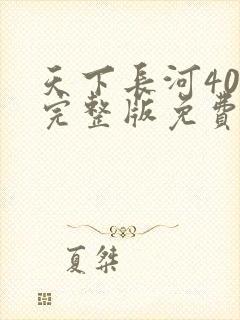 天下長河40
完整版免費
夏桀